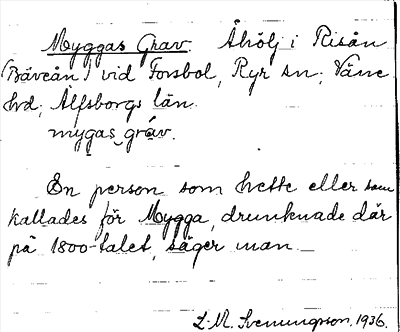 Myggas Grav. Åhölj i Risån
(Bäveån) vid Forsbol, Ryr sn; Väne
hd; Älfsborgs län.
mygas gráv.
En person som hette eller som
kallades för Mygga, drunknade där
på 1800-talet, säger man.
L. M. Svenungsson. 1936.